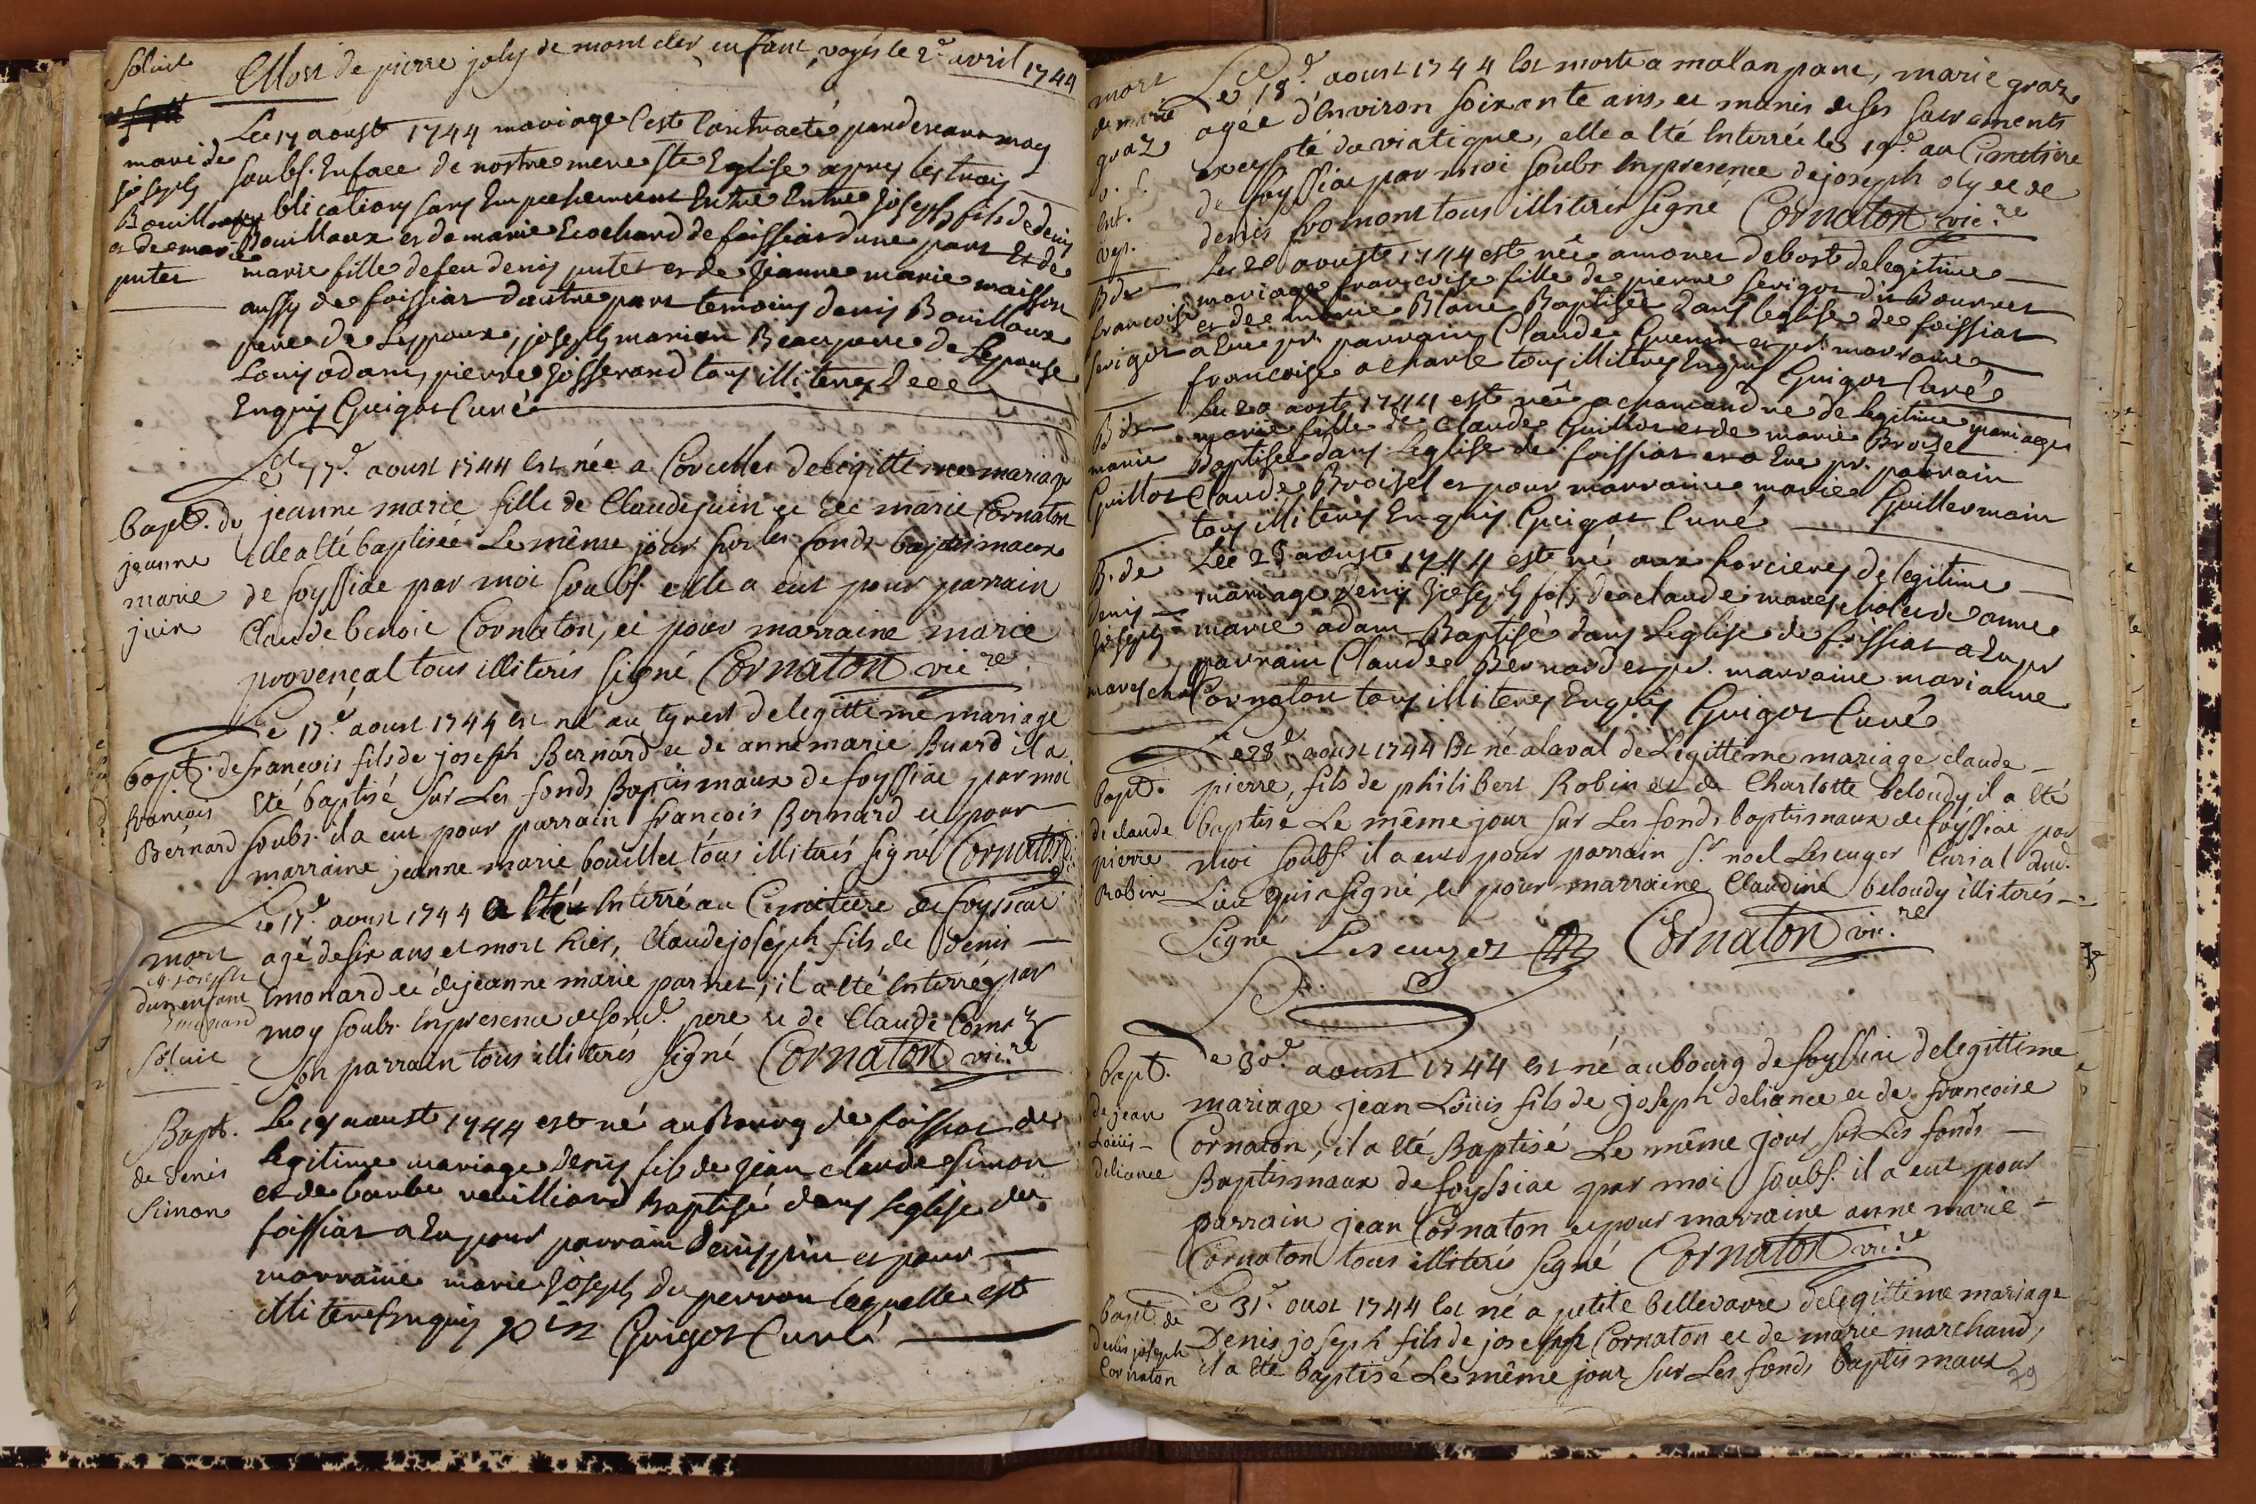 Solvit
Mort de pierre joly de mont cler enfant, voyés le 2e avril 1744
mari de
joseph
Bouilloux
et de marie
putet
Le 17 aoust 1744 mariage s'est Contracté pardevant moy
soubs. En face de nostre mere ste Eglise apres les trois
publications sans Empechement Entre Entre Joseph fils de denis
Bouilloux et de marie Ecochard de foissiat d'une part Et de
marie fille de feu denis putet et de Jeanne marie maisson
aussy de foissiat d'autre part temoins denis Bouilloux
pere de Lepoux, joseph marion Beaupere de Lepouse
Louis adam, pierre Josserand tous illiteres
Enquis Guigot Curé
Bapt. de
jeanne
marie
juin
Le 17e aoust 1744 Est née a Corcelles de legittime mariage
jeanne marie fille de Claude juin et de marie Cornaton
elle a Eté baptisée Le même jour sur les fonds baptismaux
de foyssiac par moi soubs. elle a eut pour parrain
Claude benoit Cornaton, et pour marraine marie
provençal tous illiterés signé Cornaton vic.re
bapt. de
françois
Bernard
Le 17e aoust 1744 Est né au tyvert de legittime mariage
françois fils de joseph Bernard et de anne marie Buard il a
Eté baptisé sur Les fonds Baptismaux de foyssiac par moi
soubs. il a eut pour parrain françois Bernard et pour
marraine jeanne marie bouillet tous illiterés signé Cornaton
mort
cl. joseph
d'un enfant
Emonard
Solvit
Le 17e aoust 1744 a Eté Interré au Cimetiere de foyssiac
agé de six ans et mort hier, Claude joseph fils de Denis
Emonard et de jeanne marie parret, il a Eté Interré par
moy soubs. In presence de son d. pere et de Claude
son parrain tous illiterés signé Cornaton vic.re
Bapt.
de Denis
Simon
Le 19 aoust 1744 est né au Bourg de foissiat de
legitime mariage Denis fils de Jean claude Simon
et de barbe Baptisé dans leglise de
foissiat a Eu pour parrain Denis pin et pour
marraine marie Joseph Du perron laquelle est
illitere Enquis pin Guigot Curé
mort
de marie
graz
Le 18e aoust 1744 Est morte a malanpane, marie graz
agée d'Environ soixante ans, et munis de ses sacrements
excepté du viatique, elle a Eté Interrée le 19e au Cimetiere
de foyssiac par moi soubs. In presence de joseph oly et de
denis fromont tous illiterés signé Cornaton vic.re
B de
francoise
servigot
Le 20 aoust 1744 est née a monet debost de legitime
mariage francoise fille de pierre servigot dit Bourret
et de marie Blanc Baptisée dans leglise de foissiat
a Eue pr. parrain Claude Guenin et pr. marraine
francoise acharle tous illiteres Enquis Guigot Curé
B de
marie
Guillot
Le 20 aost 1744 est née a chamandre de legitime mariage
marie fille de claude Guillot et de marie Broisel
Baptisée dans leglise de foissiat et a Eue pr. parrain
Claude Broisel et pour marraine marie Guillermain
tous illiteres Enquis Guigot Curé
B. de
Denis
Joseph
mareschal
Le 25 aoust 1744 est né aux sorcieres de legitime
mariage Denis Joseph fils de claude mareschal et de anne
marie adam Baptisé dans leglise de foissiat a Eu pr
parrain Claude Bernard et pr. marraine marianne
Cornaton tous illiteres Enquis Guigot Curé
bapt.
de claude
pierre
Robin
Le 28e aoust 1744 Est né a laval de Legittime mariage claude
pierre, fils de philibert Robin et de Charlotte beloudy, il a Eté
baptisé Le même jour sur Les fonds baptismaux de foyssiac par
moi soubs. il a eut pour parrain sr noel Lescuyer Curial dud.
Lieu qui a signé, et pour marraine Claudine beloudy illiterés
Signé Lescuyer Cornaton vic.re
bapt.
de jean
Loüis
deliance
Le 30e aoust 1744 Est né au bourg de foyssiac de legittime
mariage jean Loüis fils de joseph deliance et de françoise
Cornaton, il a Eté Baptisé Le même jour sur Les fonds
Baptismaux de foyssiac par moi soubs. il a eut pour
parrain jean Cornaton et pour marraine anne marie
Cornaton tous illiterés signé Cornaton vic.re
bapt. de
denis joseph
Cornaton
Le 31e oust 1744 Est né a petite bellevavre de legittime mariage
Denis joseph fils de joseph Cornaton et de marie marchand,
il a Eté baptisé Le même jour sur Les fonds baptismaux
79